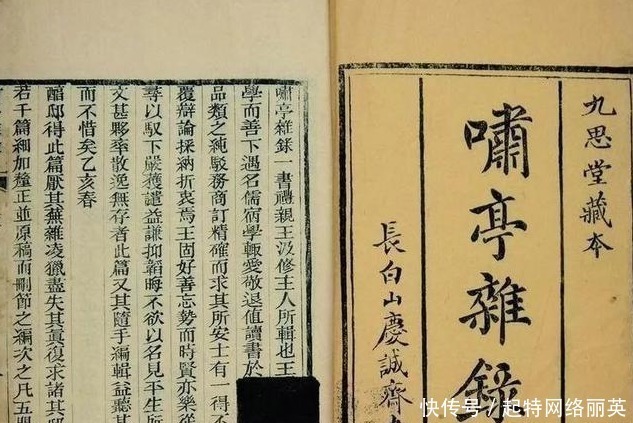 九思堂藏本
嘯亭雜錄
長白山慶誠齋
嘯亭雜錄一書禮親王汲修主人所輯也王
學而善下遇名儒宿學輒愛敬退值讀書於
品類之純駁務商訂精確而求其所安士有一得不
覆辯論採納折衷焉王固好善忘勢而時賢亦樂從
尋以馭下嚴獲譴益謙抑韜晦不欲以名見平生所
文甚夥率散逸無存者此篇又其隨手編輯益聽其
而不惜矣乙亥春
醕邸得此篇厭其蕪雜凌獵盡失其真復求諸其邸
若干篇細加釐正並原稿而刪節之編次之凡五閱
快传号/起特网络丽英